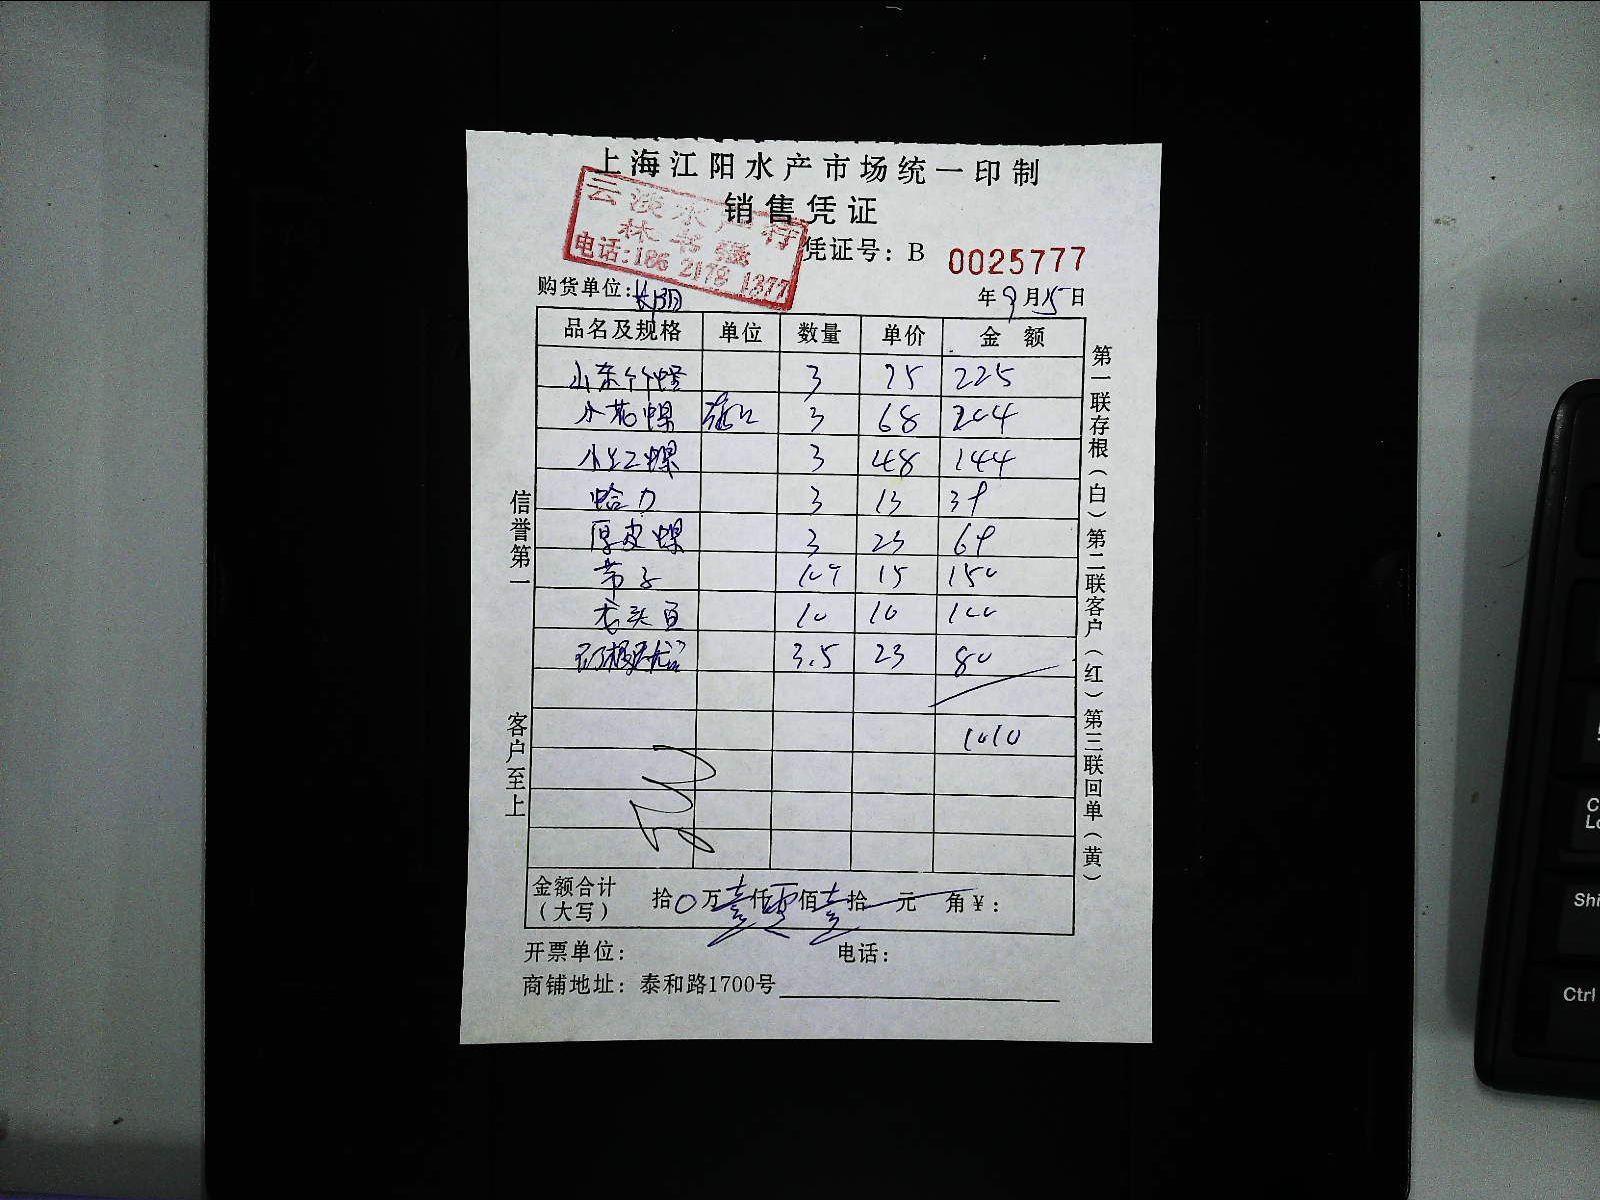 上海江阳水产市场统一印制
销售凭证
云淡水产行
林书强
电话:186 2178 1377
凭证号: B 0025777
购货单位: 长阳
年9月15日
品名及规格 单位 数量 单价 金额
山东竹蛏 3 75 225
小花螺 3 68 204
小红螺 3 48 144
蛤力 3 13 39
厚皮螺 3 23 69
带子 10个 15 150
老头鱼 10 10 100
3.5 23 80
1010
金额合计(大写) 拾0万壹仟零佰壹拾 元 角¥:
开票单位: 电话:
商铺地址: 泰和路1700号
信誉第一 客户至上
第一联存根(白) 第二联客户(红) 第三联回单(黄)
C
Lo
Shi
Ctrl